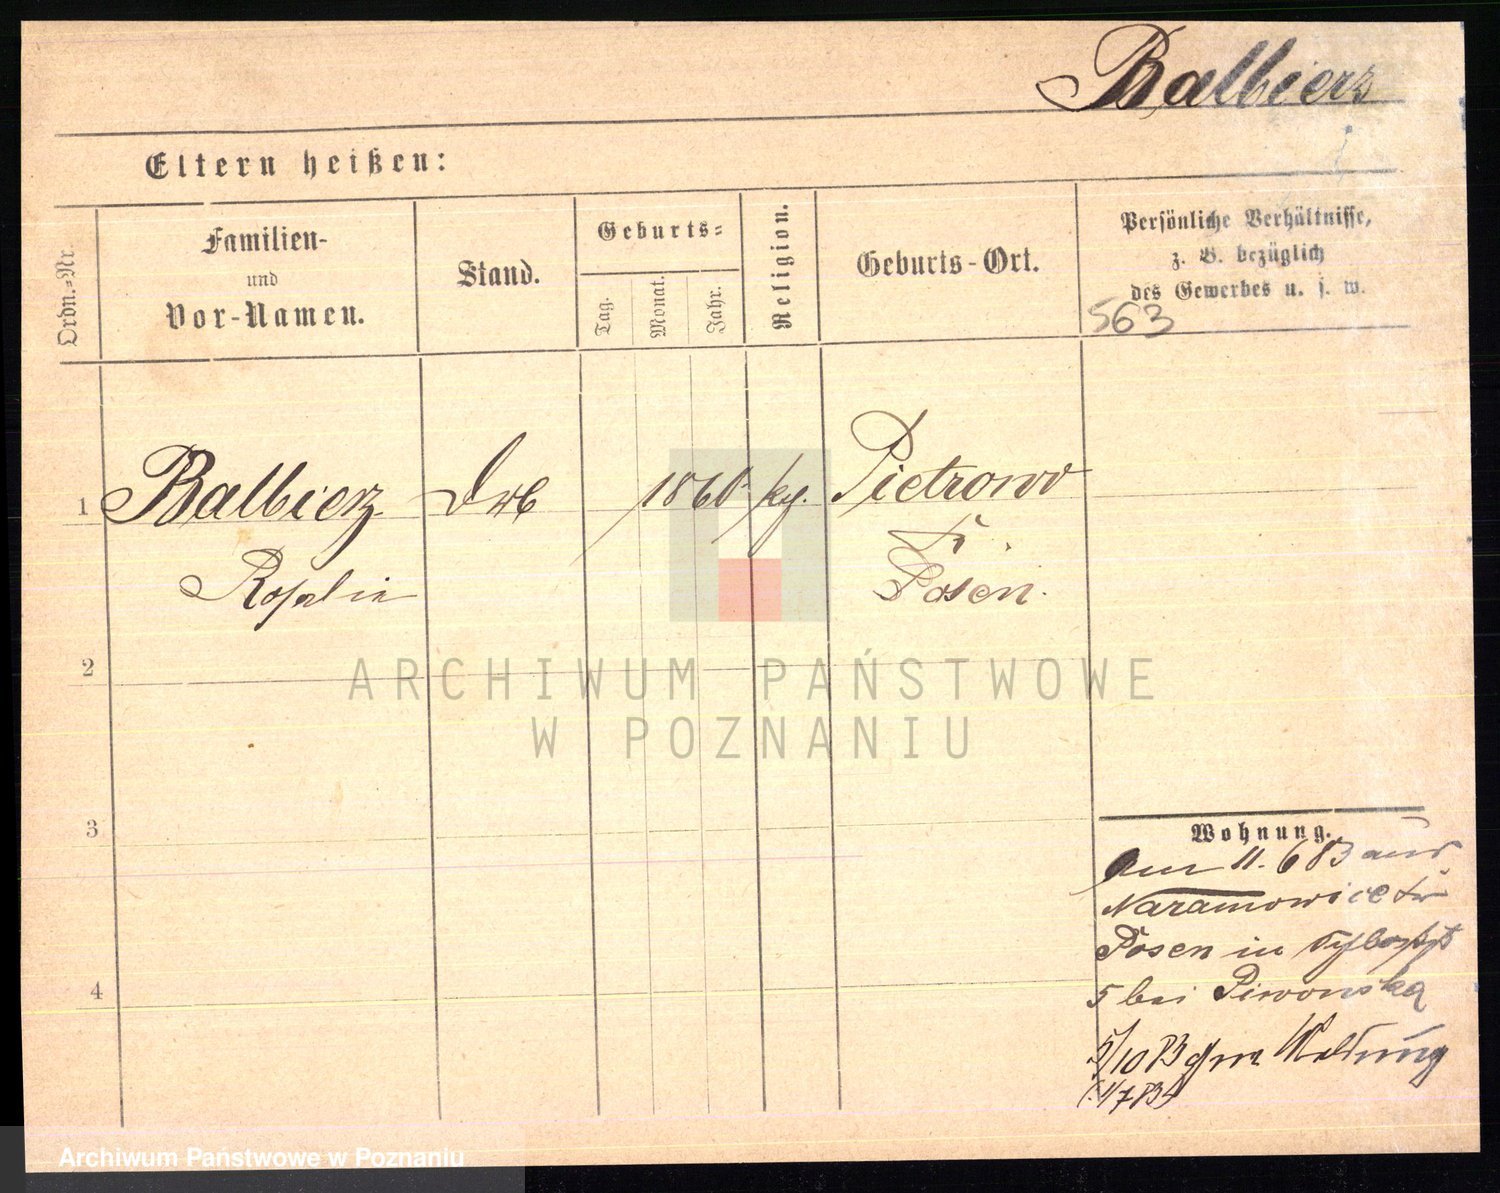 Balbierz
Eltern heißen:
Ordn.=Nr.
Familien-
und
Vor-Namen.
Stand.
Geburts=
Tag.
Monat.
Jahr.
Religion.
Geburts-Ort.
Persönliche Verhältnisse,
z. B. bezüglich
des Gewerbes u. s. w.
563
1 Balbierz 1860 Pietrowo
Rosalie Posen.
2
ARCHIWUM PAŃSTWOWE
W POZNANIU
3
4
Wohnung.
am 11.6 83 aus
Naramowice
Posen in
5 bei Piwonska
5/10 83 Meldung
Archiwum Państwowe w Poznaniu